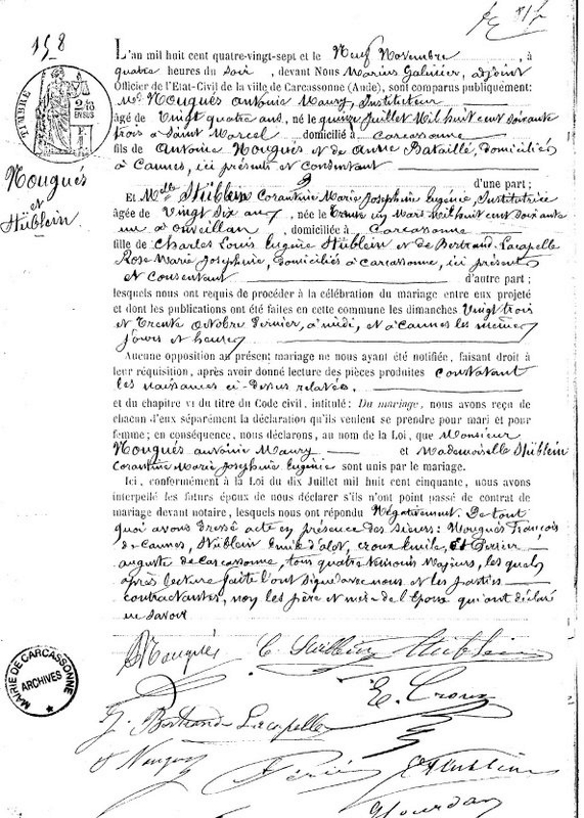 158
TIMBRE
Nougués
et
Stüblein
L'an mil huit cent quatre-vingt-sept et le Neuf Novembre, à
quatre heures du soir, devant Nous Marius Galinier, adjoint
Officier de l'Etat-Civil de la ville de Carcassonne (Aude), sont comparus publiquement:
Mr Nougués Antoine Maury, Instituteur
âgé de Vingt quatre ans, né le quinze Juillet Mil huit cent soixante
trois à Saint Marcel domicilié à Carcassonne
fils de Antoine Nougués et de Anne Bataillé, domiciliés
à Cannes, ici présents et consentant
d'une part;
Et Melle Stüblein Corantine Marie Joséphine Eugénie Institutrice
âgée de Vingt Six ans, née le Trente un Mars Mil huit cent soixante
un à Ouveillan, domiciliée à Carcassonne
fille de Charles Louis Eugène Stüblein et de Bertrand-Lacapelle
Rose Marie Joséphine, domiciliés à Carcassonne, ici présents
et consentant d'autre part;
lesquels nous ont requis de procéder à la célébration du mariage entre eux projeté
et dont les publications ont été faites en cette commune les dimanches Vingt trois
et Trente Octobre dernier, à midi, et à Cannes les mêmes
jours et heures
Aucune opposition au présent mariage ne nous ayant été notifiée, faisant droit à
leur réquisition, après avoir donné lecture des pièces produites constatant
les naissances ci-dessus relatées.
et du chapitre VI du titre du Code civil, intitulé: Du mariage, nous avons reçu de
chacun d'eux séparément la déclaration qu'ils veulent se prendre pour mari et pour
femme; en conséquence, nous déclarons, au nom de la Loi, que Monsieur
Nougués Antoine Maury et Mademoiselle Stüblein
Corantine Marie Joséphine Eugénie sont unis par le mariage.
Ici, conformément à la Loi du dix Juillet mil huit cent cinquante, nous avons
interpellé les futurs époux de nous déclarer s'ils n'ont point passé de contrat de
mariage devant notaire, lesquels nous ont répondu Négativement. De tout
quoi avons dressé acte en présence des sieurs: Nougués François
de Cannes, Stüblein Emile d'alet, Croux Emile, et Périer
auguste de Carcassonne, tous quatre témoins Majeurs, les quels
après lecture faite l'ont signé avec nous et les parties
contractantes, non les père et mère de l'Epoux qui ont déclaré
ne savoir
Nougués C. Stüblein Stüblein
E. Croux
J. Bertrand Lacapelle
Nougués Périé E Stüblein
Jourdan
MAIRIE DE CARCASSONNE
ARCHIVES